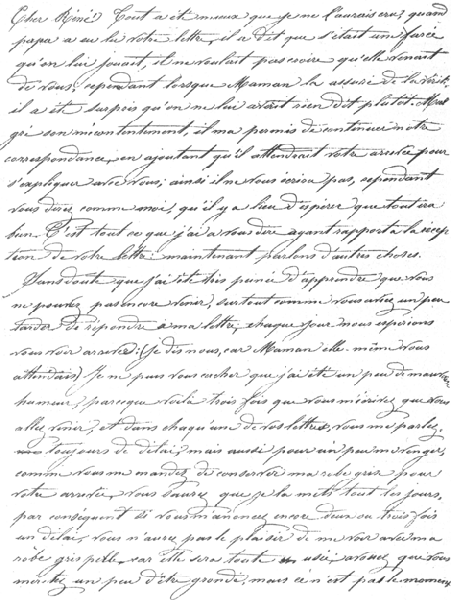 Cher Réné! Tout a été mieux que je ne l'aurais cru; quand
papa a eu lu votre lettre, il a dit que c'était une farce
qu'on lui jouait, il ne voulait pas croire qu'elle venait
de vous; cependant lorsque Maman l'a assuré de la vérité
il a été surpris qu'on ne lui avait rien dit plutôt. Mal
gré son mécontentement, il m'a permis de continuer notre
correspondance, en ajoutant qu'il attendrait votre arrivée pour
s'expliquer avec vous; ainsi il ne vous écrira pas, cependant
vous direz comme moi, qu'il y a lieu d'espérer que tout ira
bien. C'est tout ce que j'ai à vous dire ayant rapport à la récep
tion de votre lettre maintenant parlons d'autres choses.
Sans doute que j'ai été très peinée d'apprendre que vous
ne pouvez pas encore venir, surtout comme vous aviez un peu
tarder de répondre à ma lettre, chaque jour nous espérions
vous voir arriver: (je dis nous, car Maman elle-même vous
attendait) Je ne puis vous cacher que j'ai été un peu de mauvaise
humeur, parceque voilà trois fois que vous m'écrivez que vous
allez venir, et dans chaqu'une de vos lettres, vous me parlez
toujours de délai, mais aussi pour un peu me venger,
comme vous me mandez de conserver ma robe grise pour
votre arrivée, vous saurez que je la mets tout les jours,
par conséquent si vous m'annoncez encore deux ou trois fois
un délai, vous n'aurez pas le plaisir de me voir avec ma
robe gris perle, car elle sera toute usée; avouez que vous
méritez un peu d'être grondé, mais ce n'est pas le moment